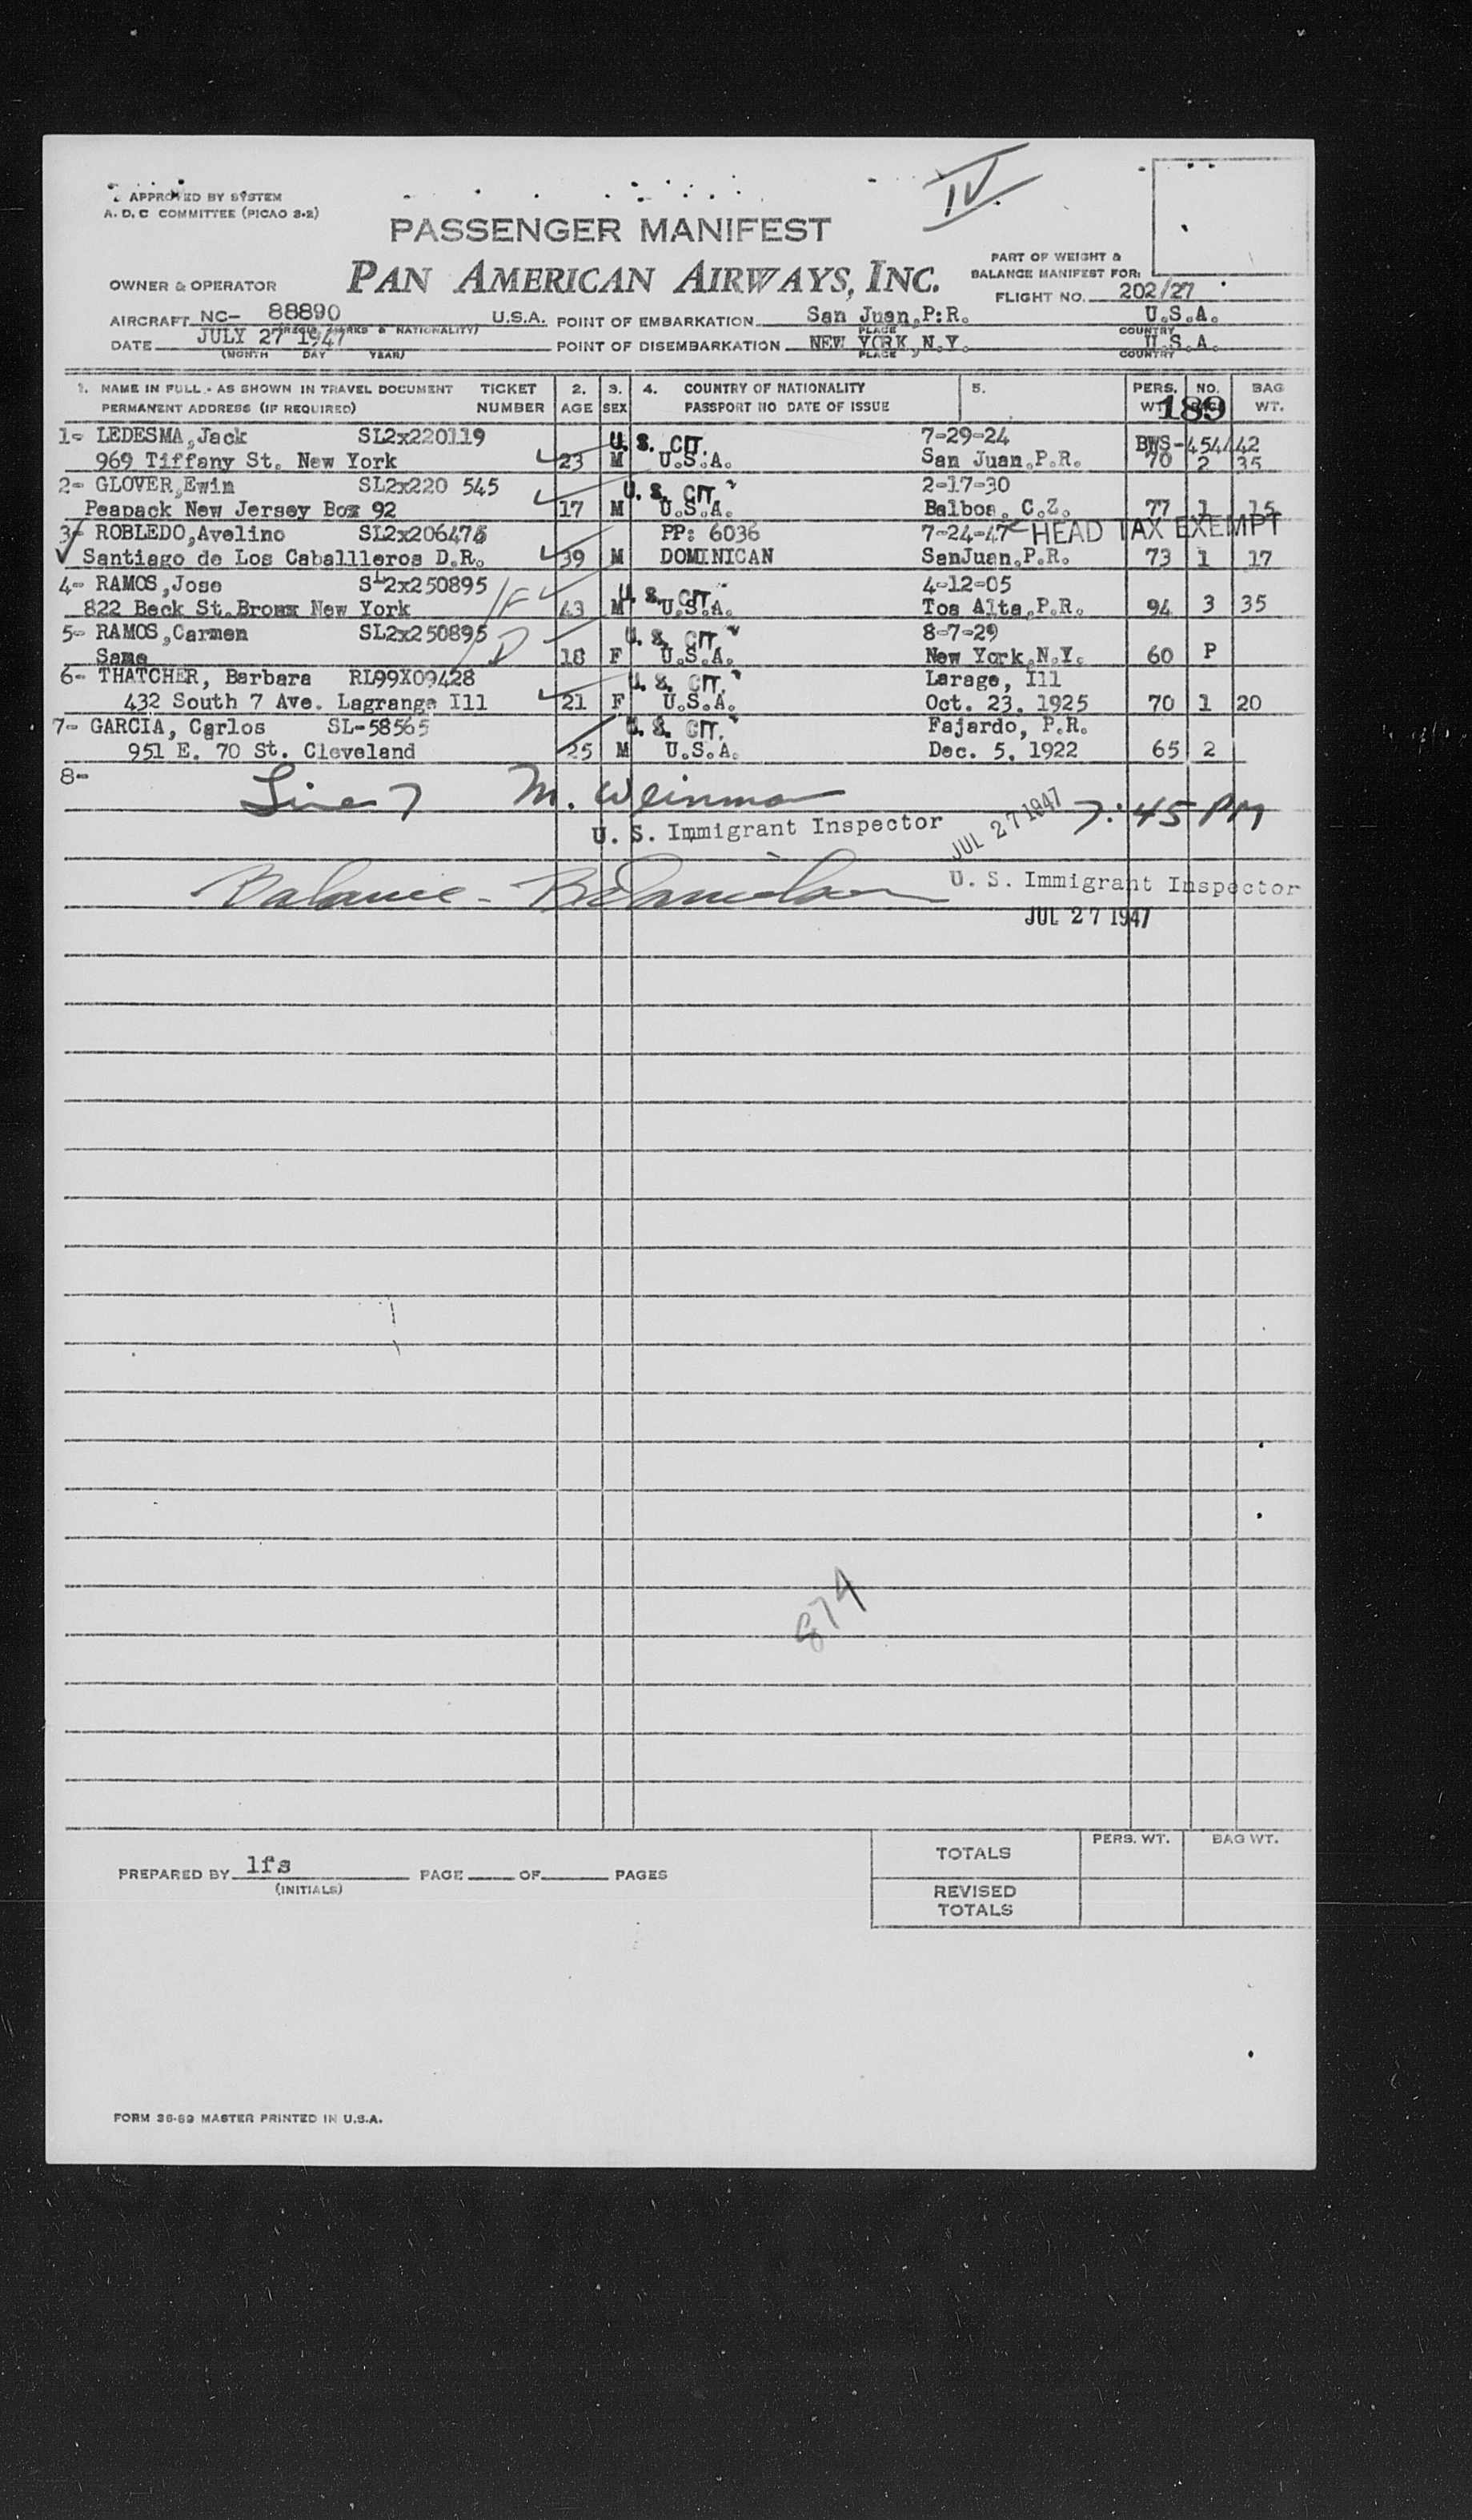 IV.
APPROVED BY SYSTEM
A. D. C COMMITTEE (PICAO 3-2)
PASSENGER MANIFEST
PART OF WEIGHT &
BALANCE MANIFEST FOR:
OWNER & OPERATOR PAN AMERICAN AIRWAYS, INC.
FLIGHT NO. 202/27
AIRCRAFT NC- 88890 U.S.A. POINT OF EMBARKATION San Juan,P:R. U.S.A.
(REGIS. MARKS & NATIONALITY) PLACE COUNTRY
DATE JULY 27 1947 POINT OF DISEMBARKATION NEW YORK,N.Y. U.S.A.
(MONTH DAY YEAR) PLACE COUNTRY
1. NAME IN FULL - AS SHOWN IN TRAVEL DOCUMENT TICKET 2. 3. 4. COUNTRY OF NATIONALITY 5. PERS. NO. BAG
PERMANENT ADDRESS (IF REQUIRED) NUMBER AGE SEX PASSPORT NO DATE OF ISSUE WT. 189 WT.
1- LEDESMA,Jack SL2x220119 U. S. CIT. 7-29-24 BWS-454442
969 Tiffany St. New York 23 M U.S.A. San Juan,P.R. 70 2 35
2- GLOVER,Ewin SL2x220 545 U. S. CIT. 2-17-30
Peapack New Jersey Box 92 17 M U.S.A. Balboa, C.Z. 77 1 15
3- ROBLEDO,Avelino SL2x206475 PP: 6036 7-24-47 HEAD TAX EXEMPT
Santiago de Los Caballleros D.R. 39 M DOMINICAN SanJuan,P.R. 73 1 17
4- RAMOS,Jose SL2x250895 F U. S. CIT. 4-12-05
822 Beck St.Bronx New York 43 M U.S.A. Toa Alta,P.R. 94 3 35
5- RAMOS,Carmen SL2x250895 D U. S. CIT. 8-7-29
Same 18 F U.S.A. New York,N.Y. 60 P
6- THATCHER, Barbara RL99X09428 U. S. CIT. Larage, Ill
432 South 7 Ave. Lagrange Ill 21 F U.S.A. Oct. 23, 1925 70 1 20
7- GARCIA, Carlos SL-58565 U. S. CIT. Fajardo, P.R.
951 E. 70 St. Cleveland 25 M U.S.A. Dec. 5, 1922 65 2
8-
Line 7 M. Weinman JUL 27 1947 7:45 PM
U. S. Immigrant Inspector
Balance - U. S. Immigrant Inspector
JUL 27 1947
874
PREPARED BY lfs PAGE OF PAGES
(INITIALS)
PERS. WT. BAG WT.
TOTALS
REVISED
TOTALS
FORM 36-69 MASTER PRINTED IN U.S.A.